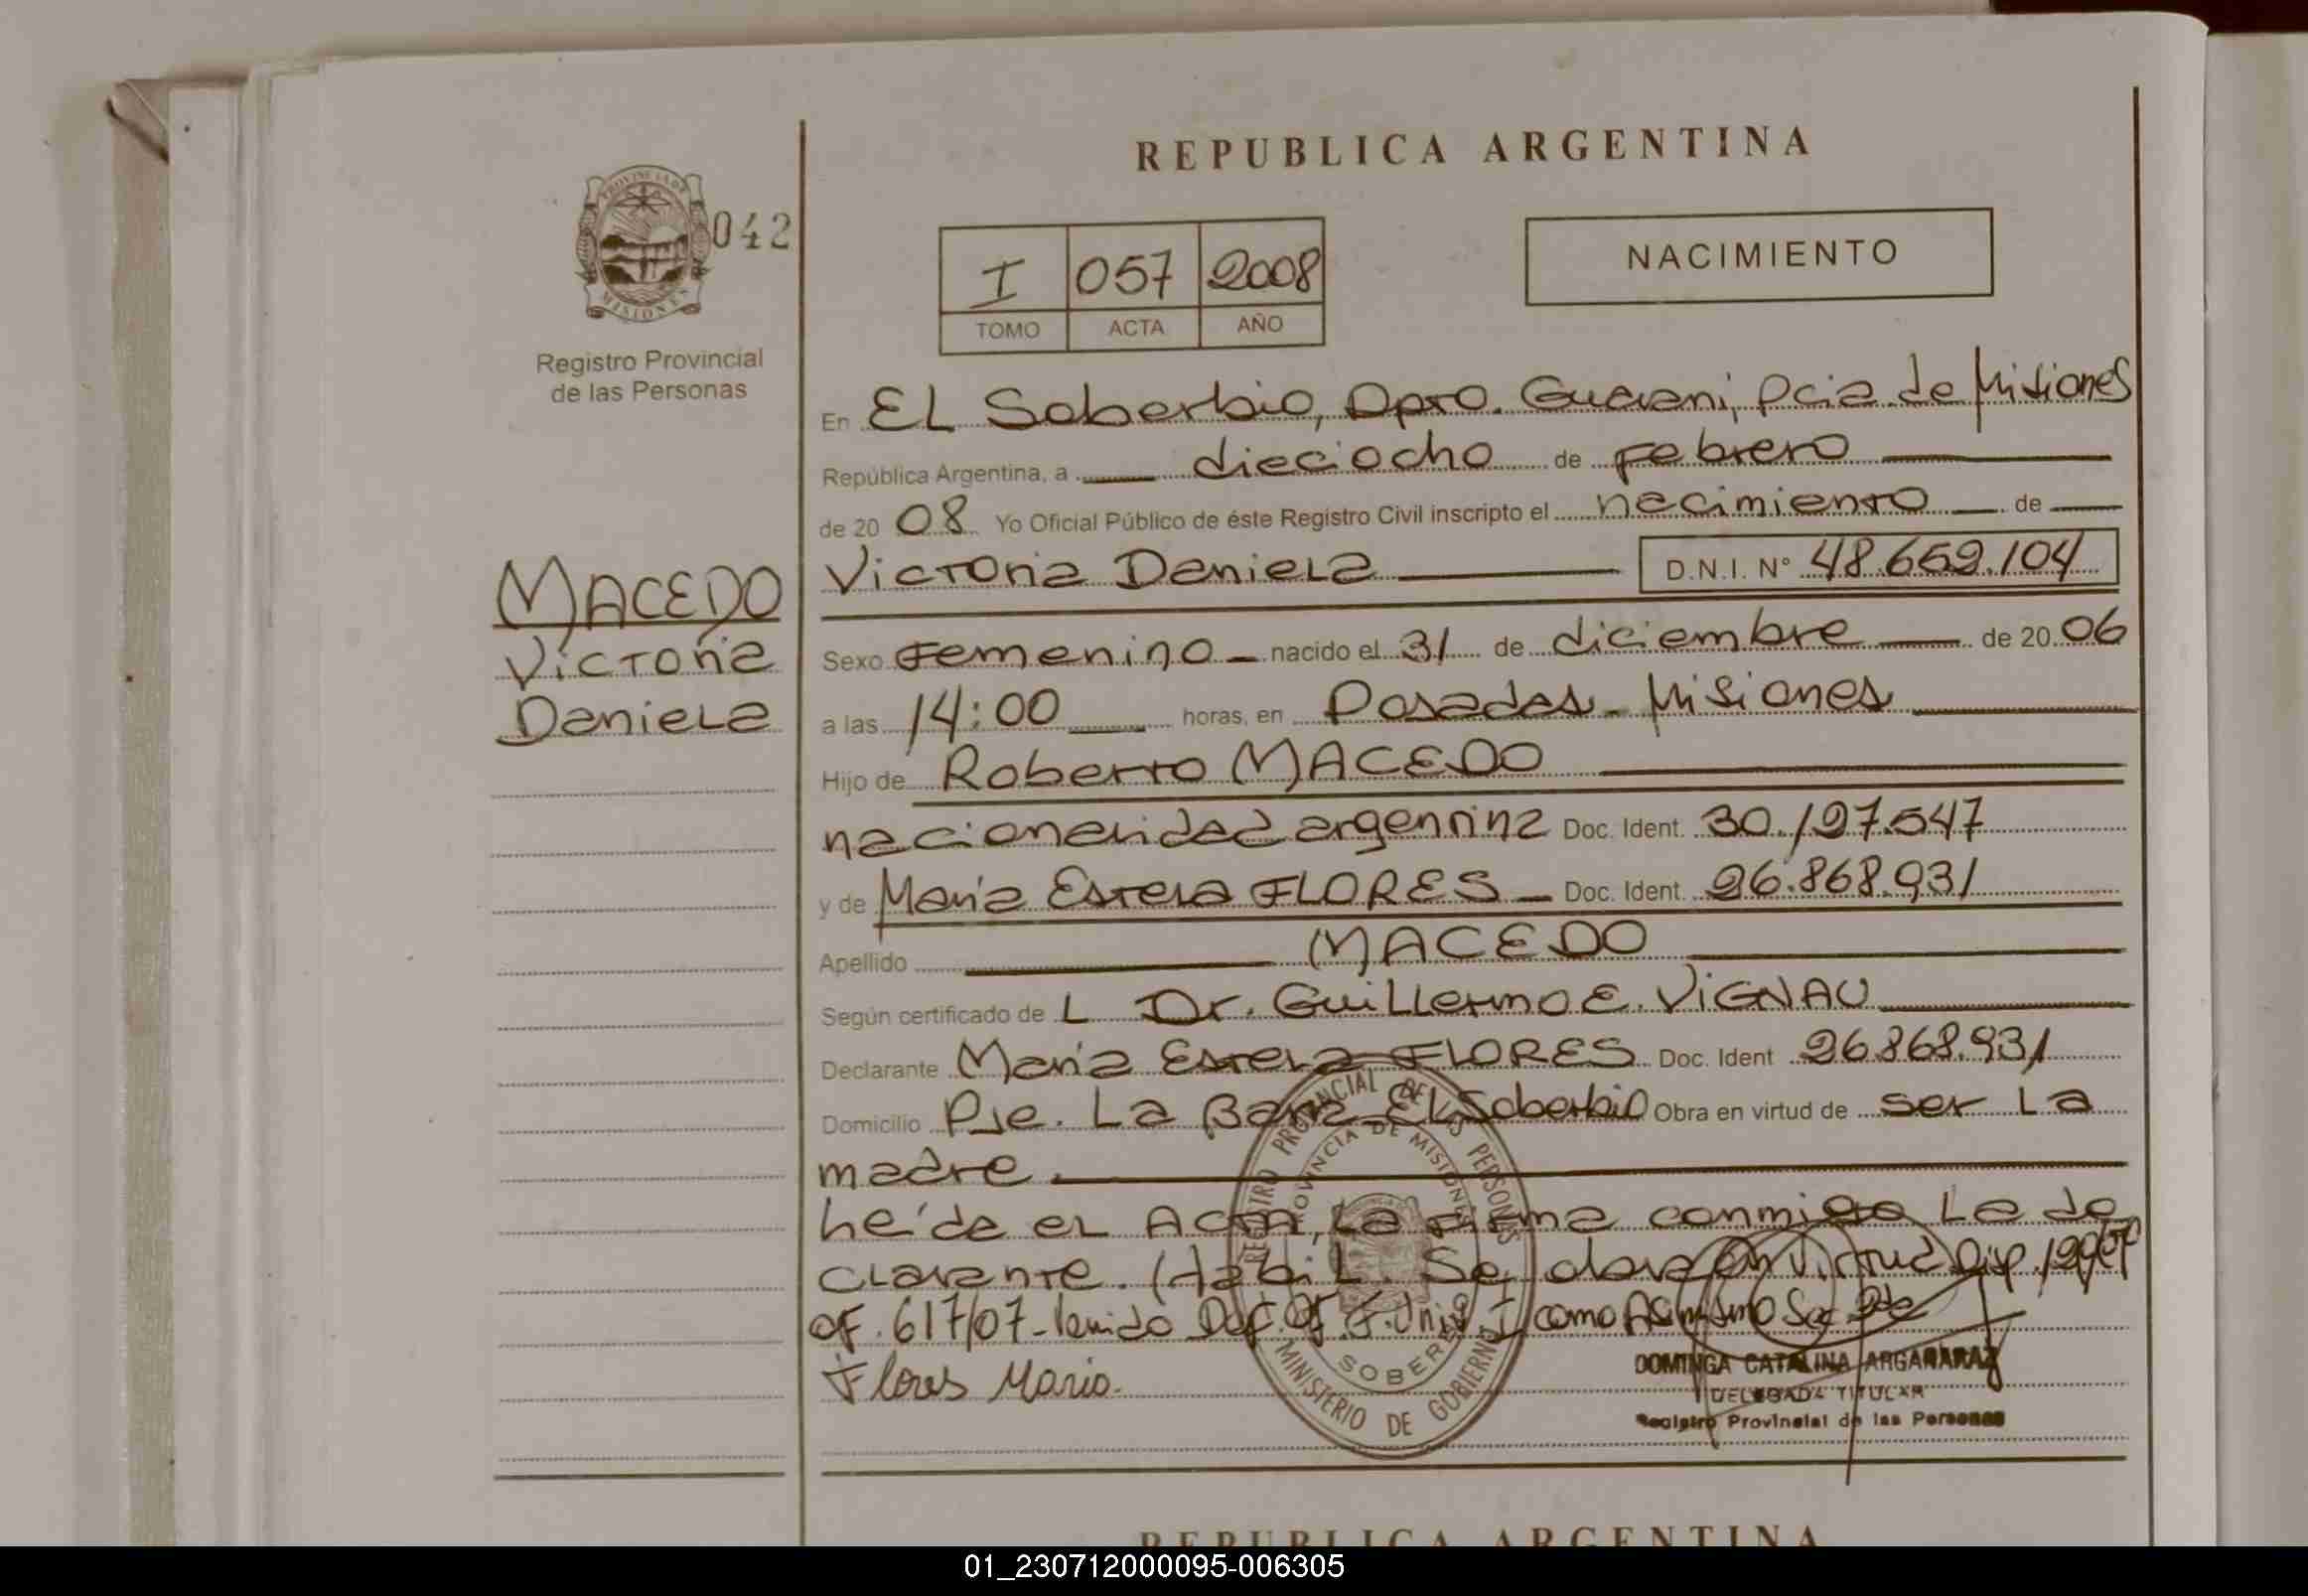 REPUBLICA ARGENTINA
PROVINCIA DE MISIONES
042
Registro Provincial
de las Personas
I 057 2008
TOMO ACTA AÑO
NACIMIENTO
En EL Soberbio, Dpto. Guarani, Pcia de Misiones
República Argentina, a dieciocho de febrero
de 2008 Yo Oficial Público de éste Registro Civil inscripto el nacimiento de
Victoria Daniela D.N.I. Nº 48.659.104
MACEDO
Victoria
Daniela
Sexo Femenino nacido el 31 de diciembre de 2006
a las 14:00 horas, en Posadas - Misiones
Hijo de Roberto MACEDO
nacionalidad argentina Doc. Ident. 30.127.547
y de María Estela FLORES Doc. Ident. 26.868.931
Apellido MACEDO
Según certificado de L Dr. Guillermo E. VIGNAU
Declarante María Estela FLORES Doc. Ident 26.868.931
Domicilio Pje. La Barra EL Soberbio Obra en virtud de ser La
madre.
Leída el Acta, La firma conmigo La de
clarante. Se labra en virtud Disp.
of. 617/07 - como Asimismo
Flores Maria.
REGISTRO PROVINCIAL DE LAS PERSONAS
PROVINCIA DE MISIONES
MINISTERIO DE GOBIERNO
DOMINGA CATALINA ARGAÑARAZ
DELEGADA TITULAR
Registro Provincial de las Personas
REPUBLICA ARGENTINA
01_230712000095-006305